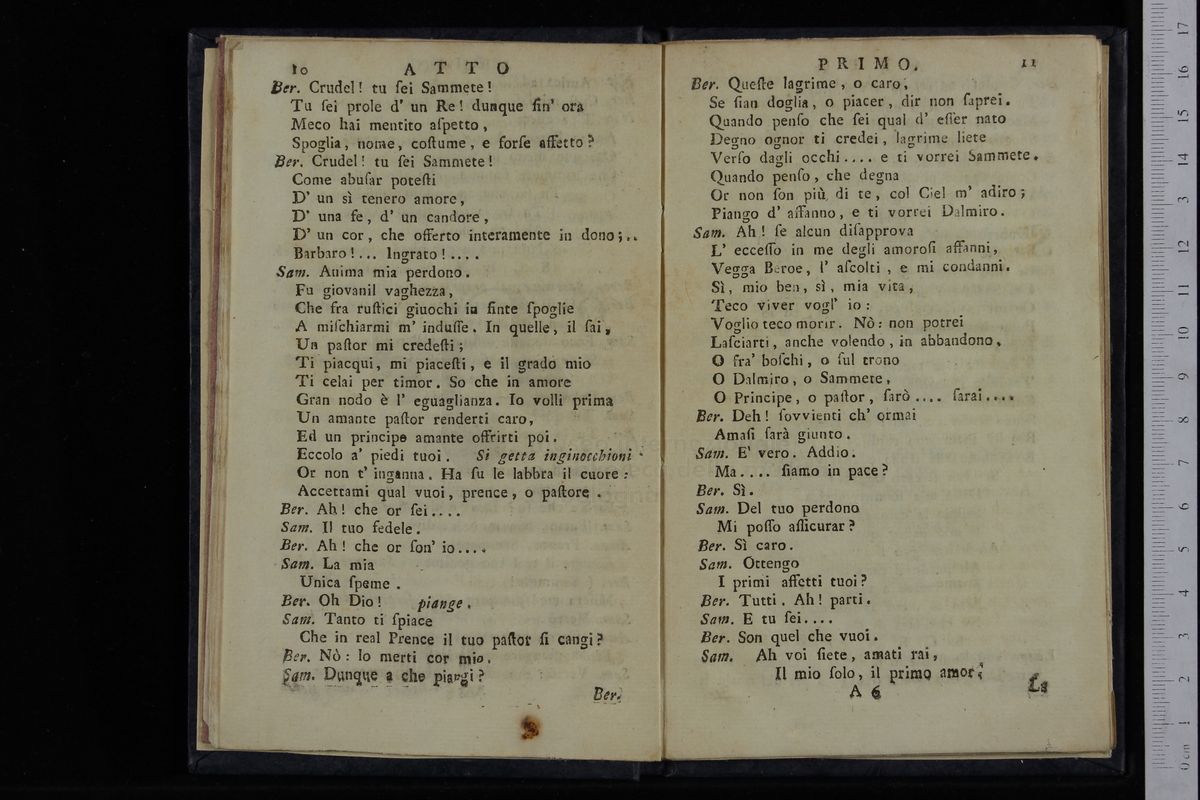 10 ATTO
Ber. Crudel! tu ſei Sammete!
Tu ſei prole d' un Re! dunque ſin' ora
Meco hai mentito aſpetto,
Spoglia, nome, coſtume, e forſe affetto?
Ber. Crudel! tu ſei Sammete!
Come abuſar poteſti
D' un sì tenero amore,
D' una fe, d' un candore,
D' un cor, che offerto interamente in dono;..
Barbaro!... Ingrato!....
Sam. Anima mia perdono.
Fu giovanil vaghezza,
Che fra ruſtici giuochi in finte ſpoglie
A miſchiarmi m' induſſe. In quelle, il ſai,
Un paſtor mi credeſti;
Ti piacqui, mi piaceſti, e il grado mio
Ti celai per timor. So che in amore
Gran nodo è l' eguaglianza. Io volli prima
Un amante paſtor renderti caro,
Ed un principe amante offrirti poi.
Eccolo a' piedi tuoi. Si getta inginocchioni
Or non t' inganna. Ha ſu le labbra il cuore:
Accettami qual vuoi, prence, o paſtore.
Ber. Ah! che or ſei....
Sam. Il tuo fedele.
Ber. Ah! che or ſon' io....
Sam. La mia
Unica ſpeme.
Ber. Oh Dio! piange.
Sam. Tanto ti ſpiace
Che in real Prence il tuo paſtor ſi cangi?
Ber. Nò: lo merti cor mio.
Sam. Dunque a che piangi?
Ber.
PRIMO. 11
Ber. Queſte lagrime, o caro,
Se ſian doglia, o piacer, dir non ſaprei.
Quando penſo che ſei qual d' eſſer nato
Degno ognor ti credei, lagrime liete
Verſo dagli occhi.... e ti vorrei Sammete.
Quando penſo, che degna
Or non ſon più di te, col Ciel m' adiro;
Piango d' affanno, e ti vorrei Dalmiro.
Sam. Ah! ſe alcun diſapprova
L' ecceſſo in me degli amoroſi affanni,
Vegga Beroe, l' aſcolti, e mi condanni.
Sì, mio ben, sì, mia vita,
Teco viver vogl' io:
Voglio teco morir. Nò: non potrei
Laſciarti, anche volendo, in abbandono.
O fra' boſchi, o ſul trono
O Dalmiro, o Sammete,
O Principe, o paſtor, ſarò.... ſarai....
Ber. Deh! ſovvienti ch' ormai
Amaſi ſarà giunto.
Sam. E' vero. Addio.
Ma.... ſiamo in pace?
Ber. Sì.
Sam. Del tuo perdono
Mi poſſo aſſicurar?
Ber. Sì caro.
Sam. Ottengo
I primi affetti tuoi?
Ber. Tutti. Ah! parti.
Sam. E tu ſei....
Ber. Son quel che vuoi.
Sam. Ah voi ſiete, amati rai,
Il mio ſolo, il primo amor;
A 6 La
0 cm 1 2 3 4 5 6 7 8 9 10 11 12 13 14 15 16 17